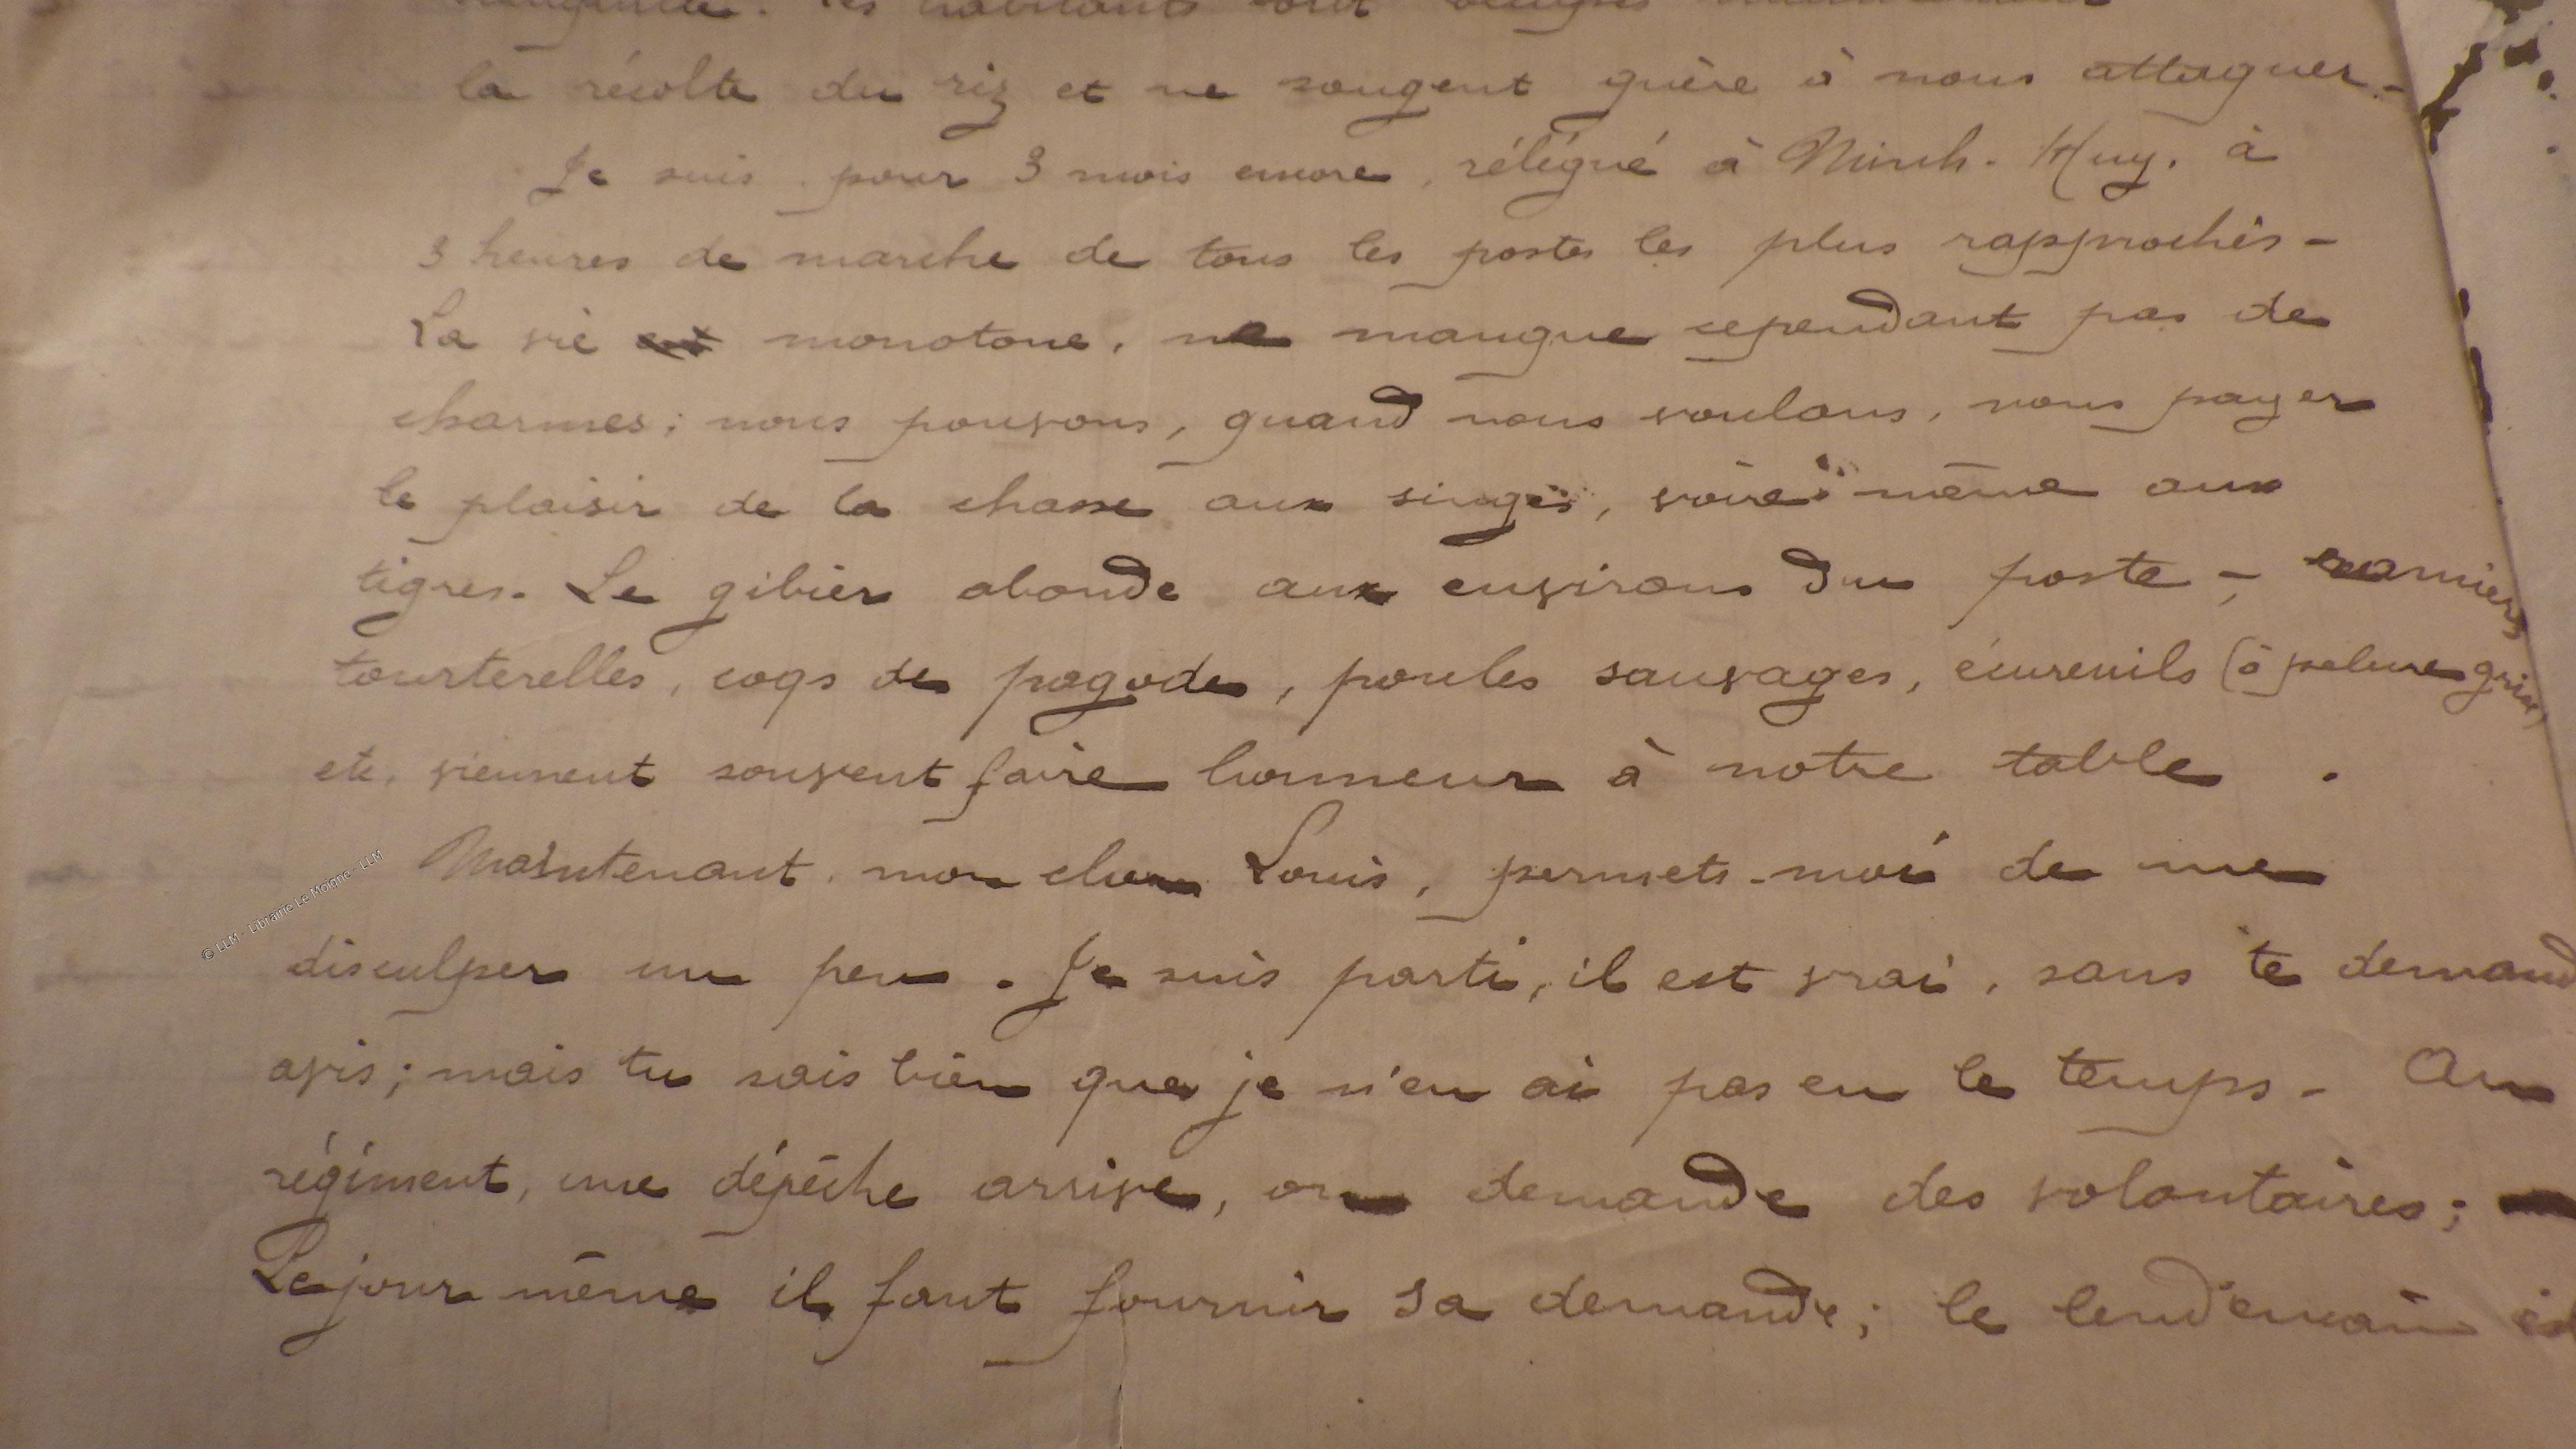 les habitants sont occupés
la récolte du riz et ne songent guère à nous attaquer -
Je suis pour 3 mois encore, rélégué à Minh-Huy, à
3 heures de marche de tous les postes les plus rapprochés -
La vie monotone, ne manque cependant pas de
charmes; nous pouvons, quand nous voulons, nous payer
le plaisir de la chasse aux singes, voire même aux
tigres. Le gibier abonde aux environs du poste -, ramiers
tourterelles, coqs de pagode, poules sauvages, écureuils (à pelure grise)
etc. viennent souvent faire honneur à notre table.
Maintenant, mon cher Louis, permets-moi de me
© LLM - Librairie Le Moigne - LLM
disculper un peu. Je suis parti, il est vrai, sans te demand
avis; mais tu sais bien que je n'en ai pas eu le temps - Au
régiment, une dépêche arrive, on demande des volontaires;
Le jour même il faut fournir sa demande; le lendemain